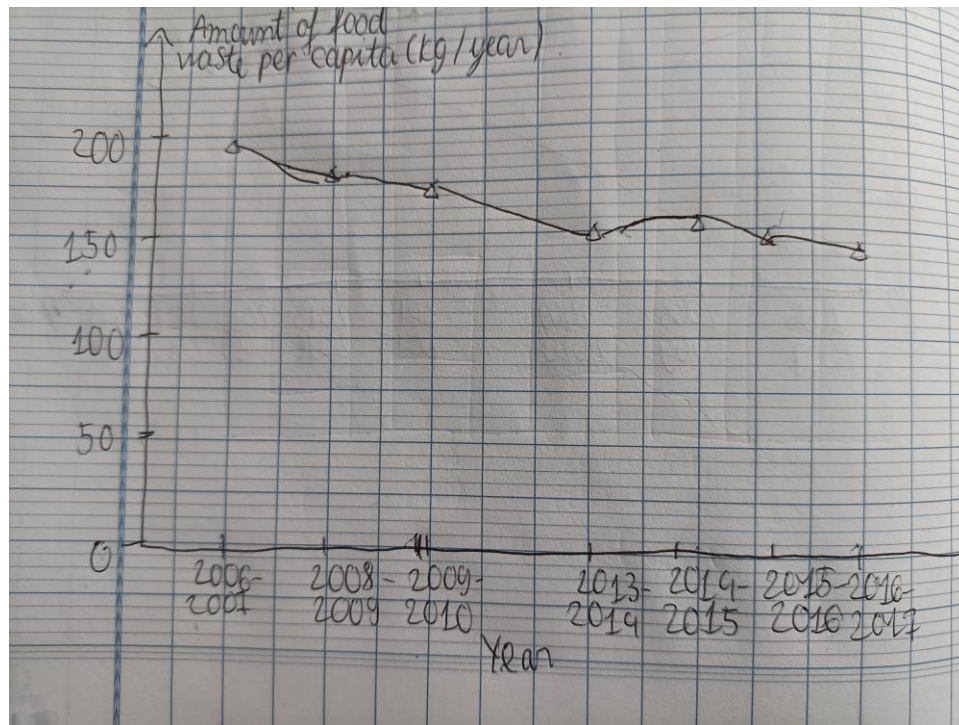 Amount of food
waste per capita (kg/year)
200
150
100
50
0
2006- 2008- 2009- 2013- 2014- 2015- 2016-
2007 2009 2010 2014 2015 2016 2017
Year